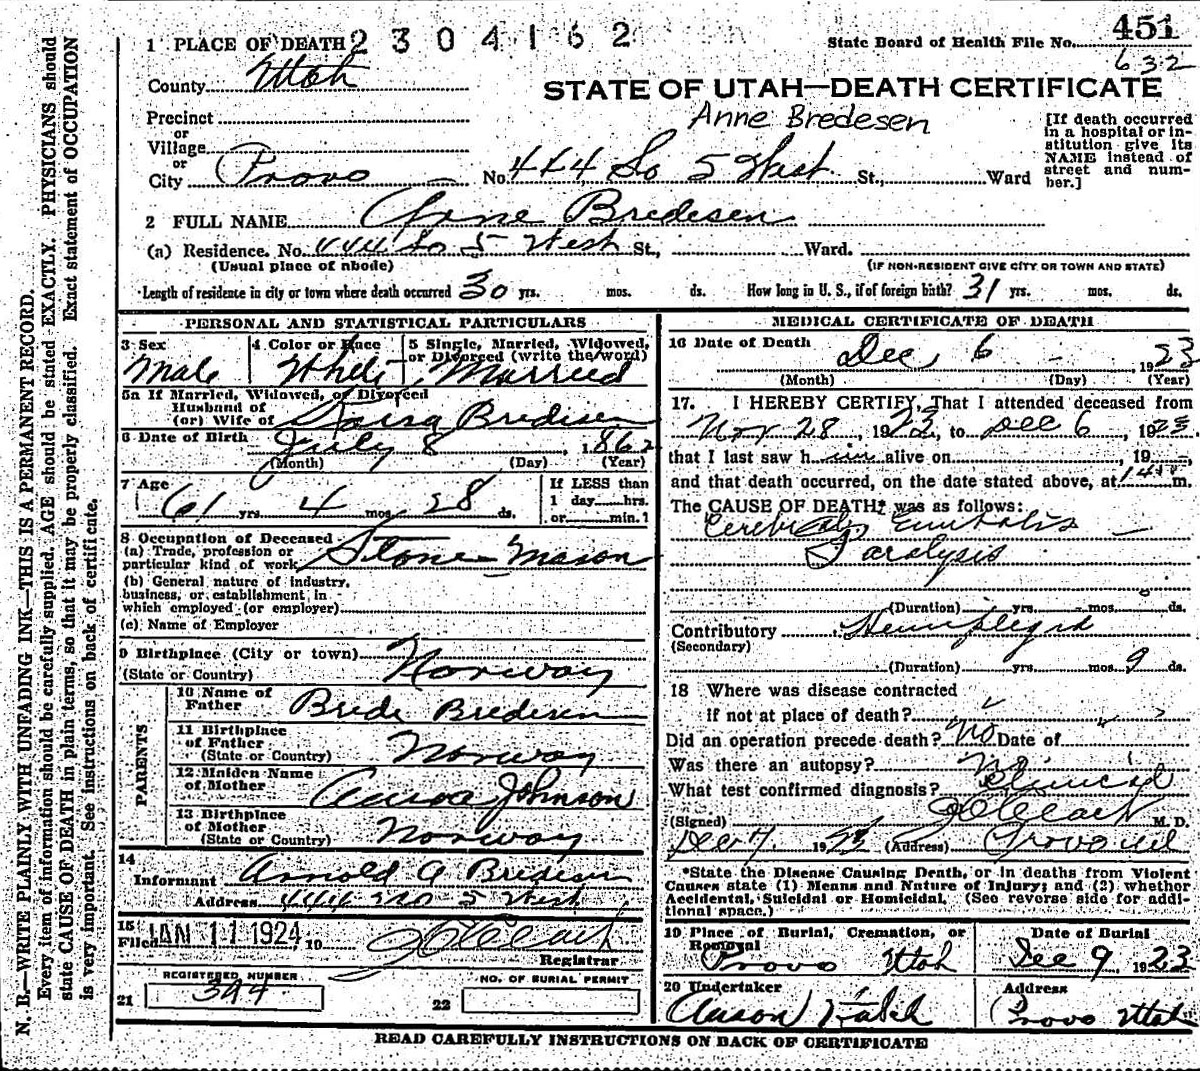 2304162
State Board of Health File No. 451
632
1 PLACE OF DEATH
County Utah
STATE OF UTAH—DEATH CERTIFICATE
Anne Bredesen
Precinct
or
Village
or
City Provo No. 444 So 5 West St., Ward
[If death occurred
in a hospital or in-
stitution give its
NAME instead of
street and num-
ber.]
2 FULL NAME Anne Bredesen
(a) Residence. No. 444 So 5 West St., Ward.
(Usual place of abode) (IF NON-RESIDENT GIVE CITY OR TOWN AND STATE)
Length of residence in city or town where death occurred 30 yrs. mos. ds. How long in U. S., if of foreign birth? 31 yrs. mos. ds.
PERSONAL AND STATISTICAL PARTICULARS
3 Sex 4 Color or Race 5 Single, Married, Widowed,
or Divorced (write the word)
Male White Married
5a If Married, Widowed, or Divorced
Husband of
(or) Wife of Bredesen
6 Date of Birth July 8, 1862
(Month) (Day) (Year)
7 Age If LESS than
61 yrs 4 mos. 28 ds. 1 day hrs.
or min.?
8 Occupation of Deceased
(a) Trade, profession or
particular kind of work Stone Mason
(b) General nature of industry,
business, or establishment in
which employed (or employer)
(c) Name of Employer
9 Birthplace (City or town)
(State or Country) Norway
PARENTS
10 Name of
Father Brede Bredesen
11 Birthplace
of Father
(State or Country) Norway
12 Maiden Name
of Mother Johnson
13 Birthplace
of Mother
(State or Country) Norway
14
Informant Arnold A Bredesen
Address 444 So 5 West
15
Filed JAN 11 1924 19
Registrar
REGISTERED NUMBER NO. OF BURIAL PERMIT
21 394 22
MEDICAL CERTIFICATE OF DEATH
16 Date of Death Dec 6 1923
(Month) (Day) (Year)
17. I HEREBY CERTIFY, That I attended deceased from
Nov 28, 1923, to Dec 6, 1923.
that I last saw him alive on , 19
and that death occurred, on the date stated above, at m.
The CAUSE OF DEATH* was as follows:
Cerebral Embolis
Paralysis
(Duration) yrs. mos. ds.
Contributory Hemiplegia
(Secondary)
(Duration) yrs. mos. 9 ds.
18 Where was disease contracted
if not at place of death?
Did an operation precede death? No Date of
Was there an autopsy? No
What test confirmed diagnosis? Clinical
(Signed) M. D.
Dec 7. 1923 (Address) Provo
*State the Disease Causing Death, or in deaths from Violent
Causes state (1) Means and Nature of Injury; and (2) whether
Accidental, Suicidal or Homicidal. (See reverse side for addi-
tional space.)
19 Place of Burial, Cremation, or Date of Burial
Removal
Provo Utah Dec 9 1923
20 Undertaker Address
Provo Utah
READ CAREFULLY INSTRUCTIONS ON BACK OF CERTIFICATE
N. B.—WRITE PLAINLY WITH UNFADING INK—THIS IS A PERMANENT RECORD.
Every item of information should be carefully supplied. AGE should be stated EXACTLY. PHYSICIANS should
state CAUSE OF DEATH in plain terms, so that it may be properly classified. Exact statement of OCCUPATION
is very important. See instructions on back of certificate.